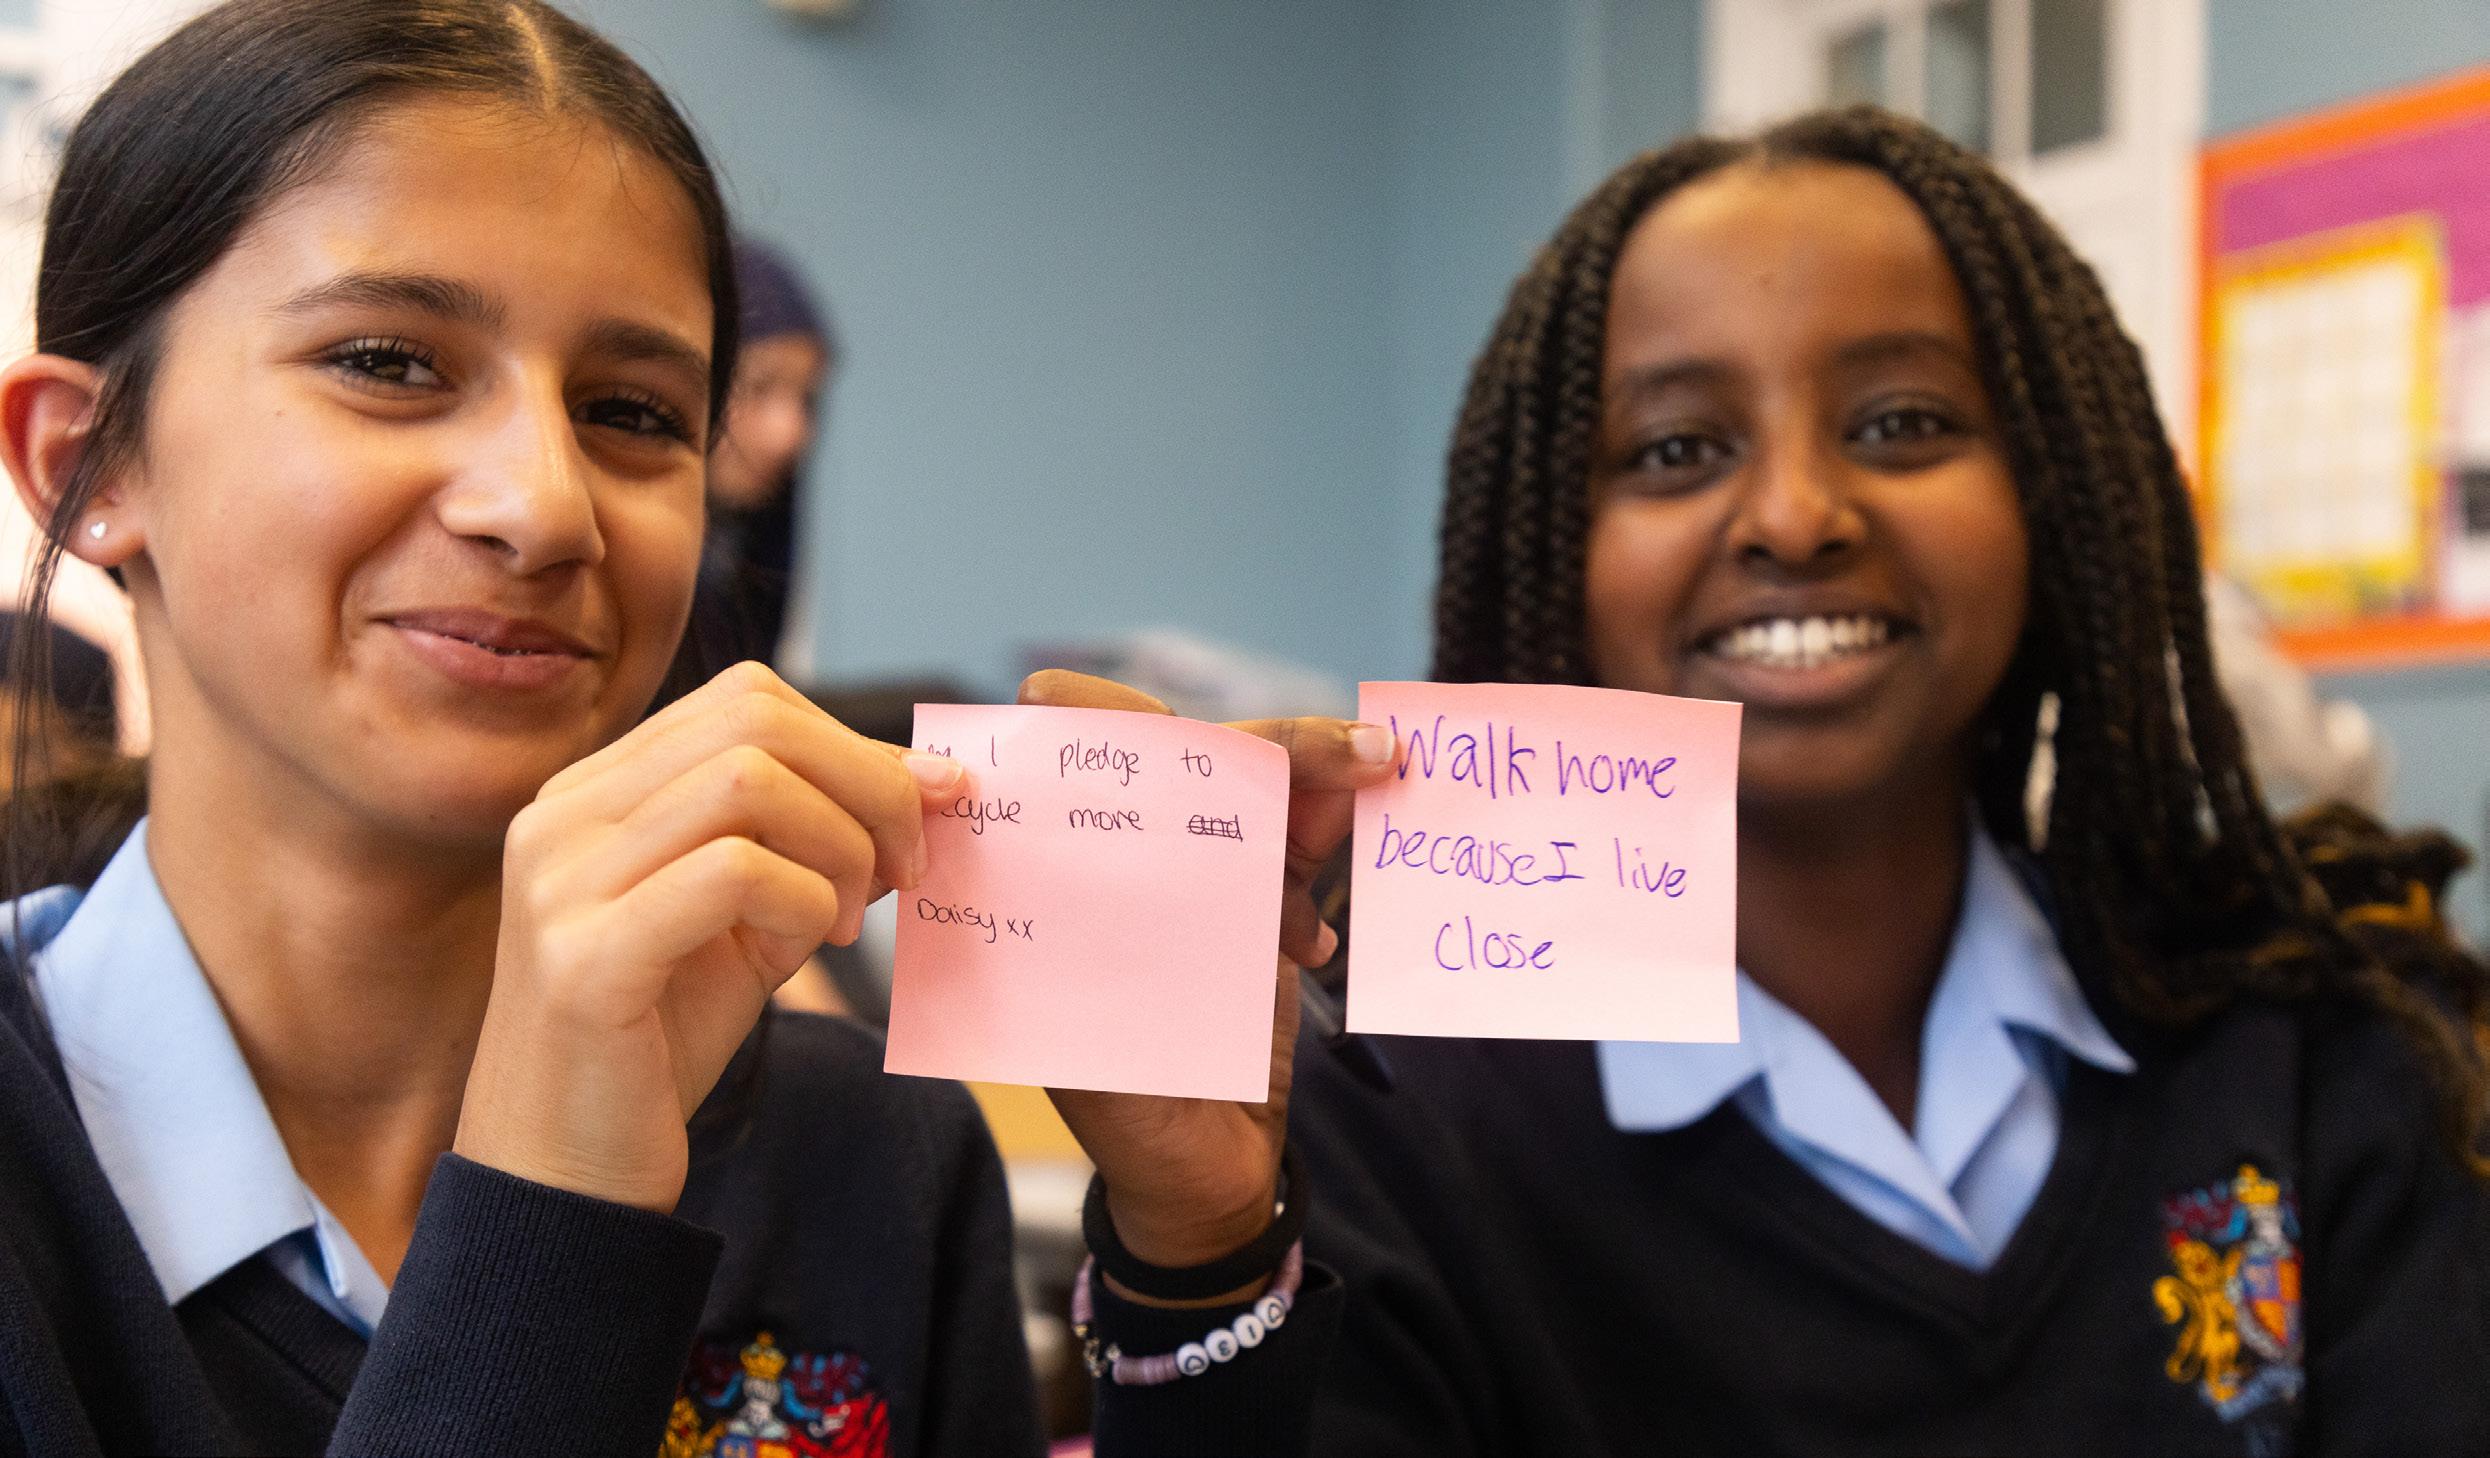 I pledge to
cycle more and
Daisy xx
Walk home
because I live
close